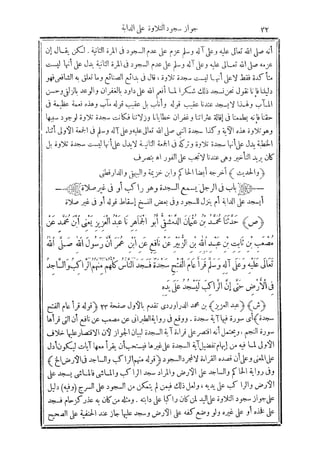 ٣٢ جواز سجود التلاوة على الدابة
أنه صلى الله تعالى عليه وعلى آله وسلم عزم على عدم السجود فى المرة الثانية . لكن يقــال إن
عزمه صلى الله تعــالى عليه وعلى آله وسلم على عدم السجود فى المرة الثانية يدل على أنها ليست
متأكدة فقط لاعلى أنهــا ليست سجدة تلاوة ، قال فى بدائع الصنائع وما تعلق به الشافعى فهو
دليلنا فإنا نقول نحن نسجد ذلك شكرا لمــا أنعم الله على داود بالغفران والوعد بالزلفى وحسن
المــآب ولهــذا لايسجد عندنا عقيب قوله وأناب بل عقيب قوله مآب وهذه نعمة عظيمة فى
حقنا فإنه يطمعنا فى إقالة عثراتنا وغفران خطايانا وزلاتنا فكانت سجدة تلاوة لوجود سببها
وهو تلاوة هذه الآية وكذا سجدة النبى صلى الله تعالى عليه وعلى آله وسلم فى الجمعة الأولى أثناء
الخطبة يدل على أنها سجدة تلاوة وتركه فى الجمعة الثانية لايدل على أنها ليست سجدة تلاوة بل
كان يريد التأخير وهى عندنا لاتجب على الفور اه بتصرف
﴿والحديث﴾ أخرجه أيضا الحاكم وابن خزيمة والبيهقى والدارقطنى
باب فى الرجل يسمع السجدة وهو راكب أو فى غير صلاة
أيسجد على الدابة أم ينزل للسجود وفى بعض النسخ إسقاط قوله أو فى غير صلاة
﴿ص﴾ حَدَّثَنَا مُحَمَّدُ بْنُ عُثْمَانَ الدِّمَشْقِيُّ أَبُو الْجُمَاهِرِ نَا عَبْدُ الْعَزِيزِ يَعْنِى ابْنَ مُحَمَّدٍ عَنْ
مُصْعَبِ بْنِ ثَابِتِ بْنِ عَبْدِ اللهِ بْنِ الزُّبَيْرِ عَنْ نَافِعٍ عَنِ ابْنِ عُمَرَ أَنَّ رَسُولَ اللهِ صَلَّى اللهُ
تَعَالَى عَلَيْهِ وَعَلَى آلِهِ وَسَلَّمَ قَرَأَ عَامَ الْفَتْحِ سَجْدَةً فَسَجَدَ النَّاسُ كُلُّهُمْ مِنْهُمُ الرَّاكِبُ وَالسَّاجِدُ
فِى الْأَرْضِ حَتَّى إِنَّ الرَّاكِبَ لَيَسْجُدُ عَلَى يَدِهِ
﴿ش﴾ ﴿عبد العزيز﴾ بن محمد الدراوردى تقدم بالأول صفحة ٢٣ ﴿قوله قرأ عام الفتح
سجدة﴾ أى سورة فيها آية سجدة . ووقع فى رواية الطبرانى عن مصعب عن نافع أن التى قرأها
سورة النجم . ويحتمل أنه اقتصر على قراءة آية السجدة لبيان الجواز لأن الاقتصار عليها خلاف
الأولى لما فيه من إيهام تفضيل آية السجدة على غيرها فيستحب أن يقرأ معها آيات ليكون أدل
على المعنى وعلى أن قصده القراءة لامجرد السجود ﴿قوله منهم الراكب والساجد فى الأرض الخ﴾
وفى رواية الحاكم والساجد على الأرض والمراد سجد الراكب والمــاشى فالمــاشى يسجد على
الأرض والراكب على يديه ، ولعل ذلك فيمن لم يتمكن من السجود على السرج ﴿وفيه﴾ دليل
على جواز سجود التلاوة على اليد لمن كان راكبا على دابته . ومثله من كان به عذر كزحام فسجد
على فخذه أو على غيره ولو وضع كفه على الأرض وسجد عليها جاز عند الحنفية على الصحيح